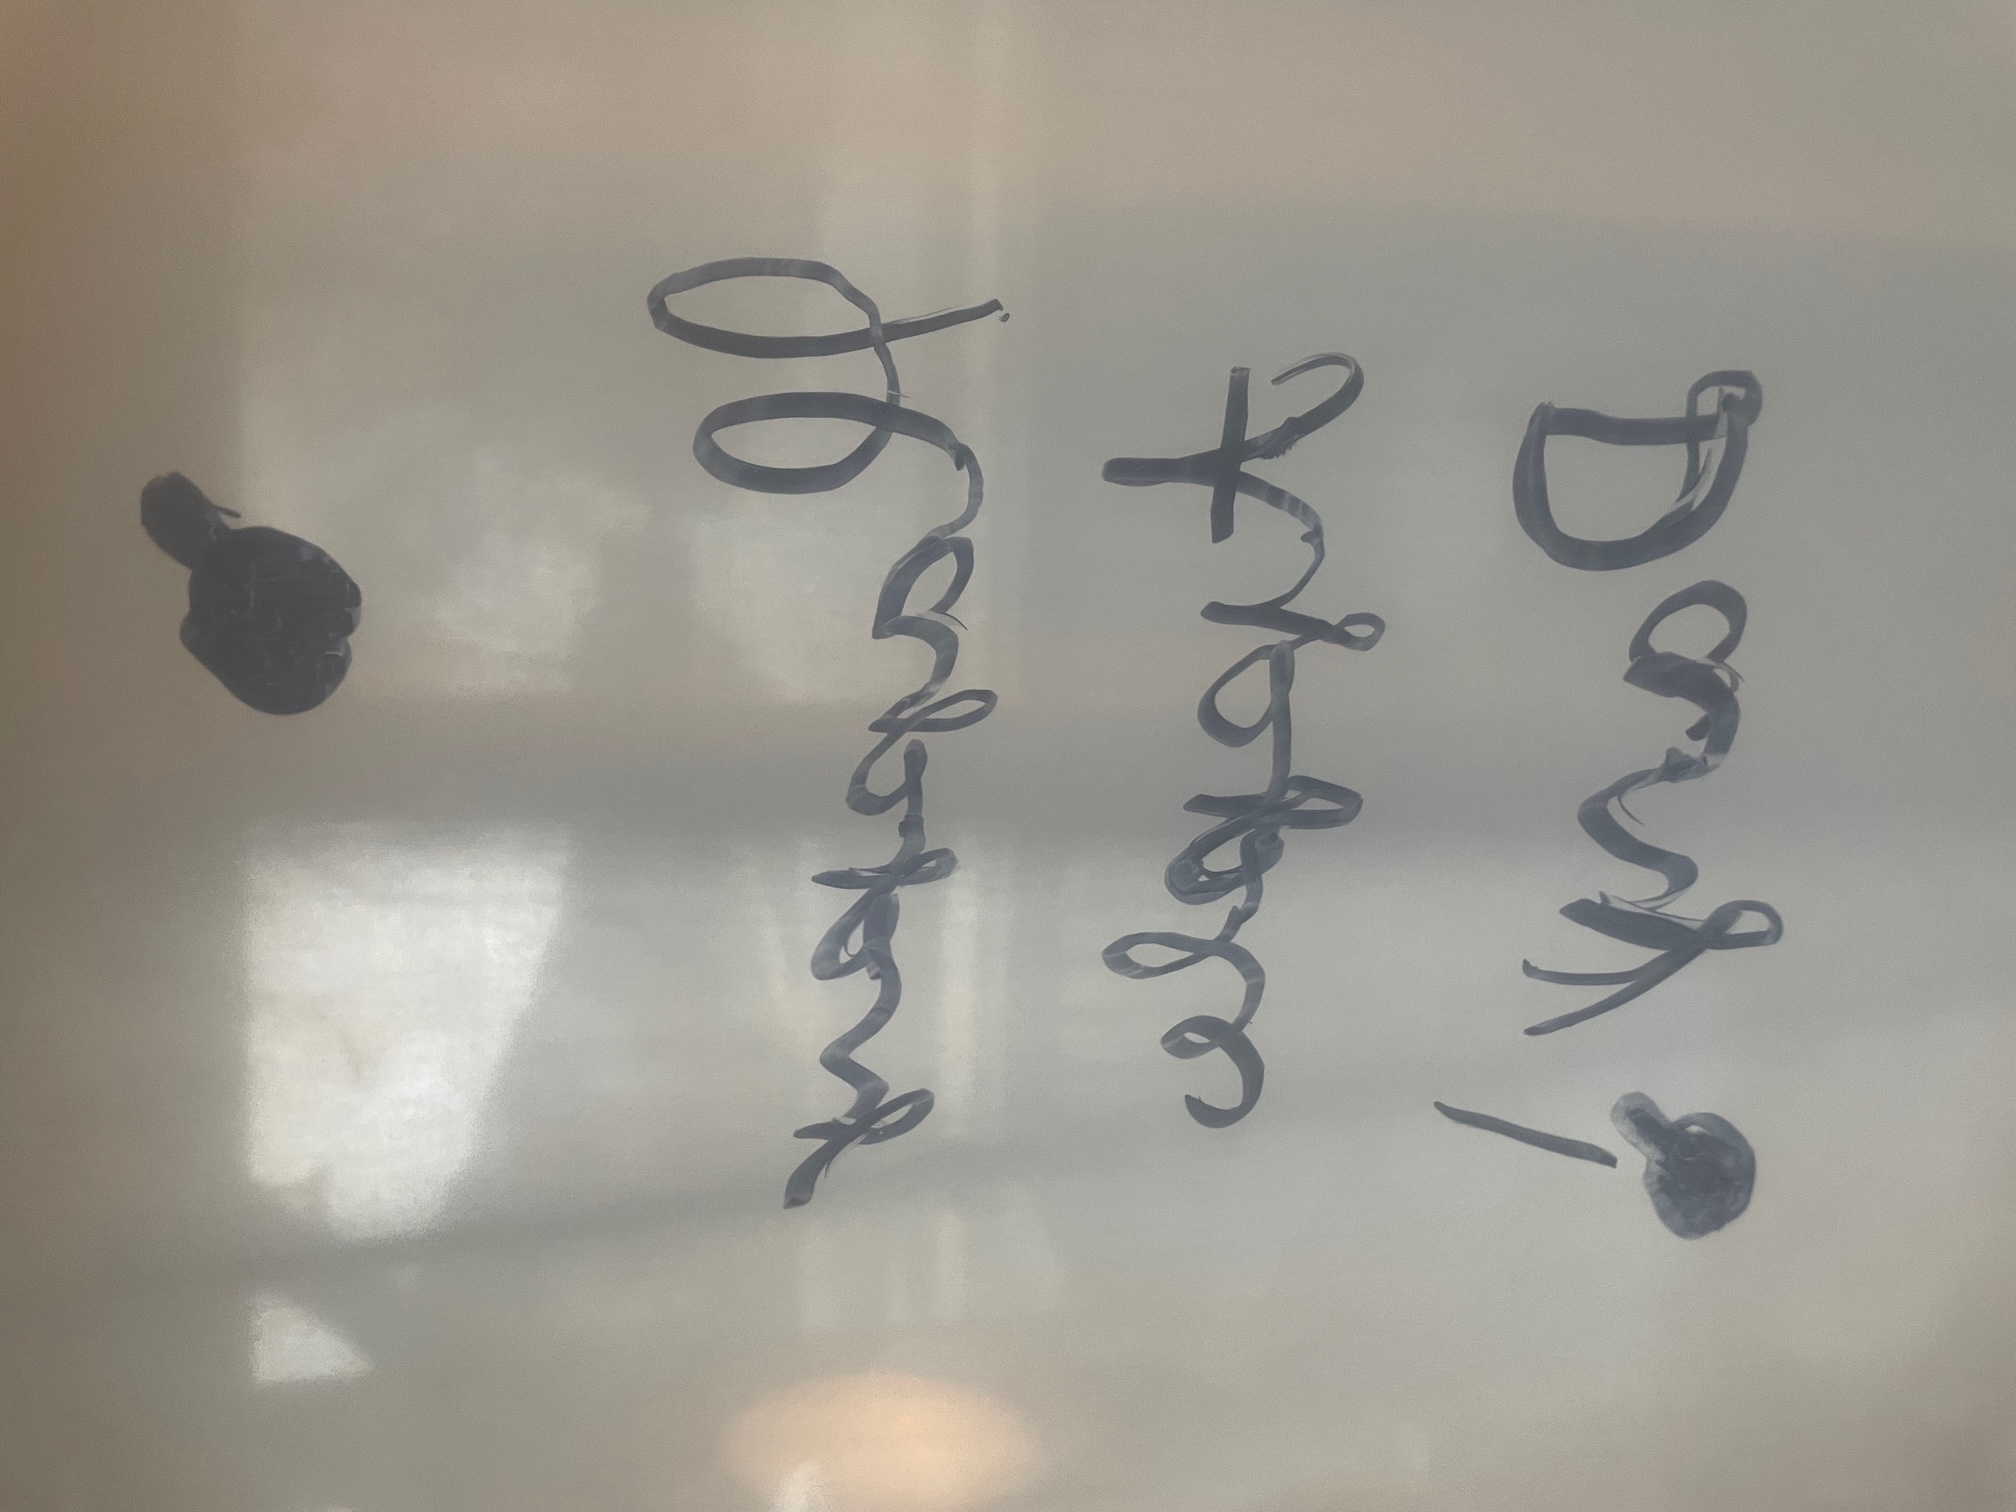 Happy
Apple
Day!